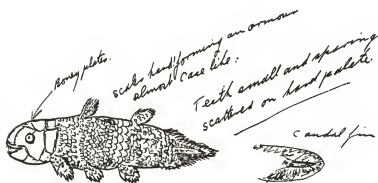 Boney plates.
scales hard forming an armour
almost case like:
Teeth small and sparing
scattered on hard palate.
Caudal fin